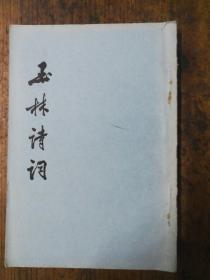 玉林诗词